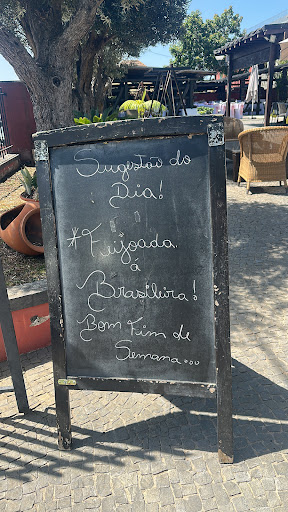 Sugestão do
Dia!
*Feijoada
á
Brasileira!
Bom Fim de
Semana...